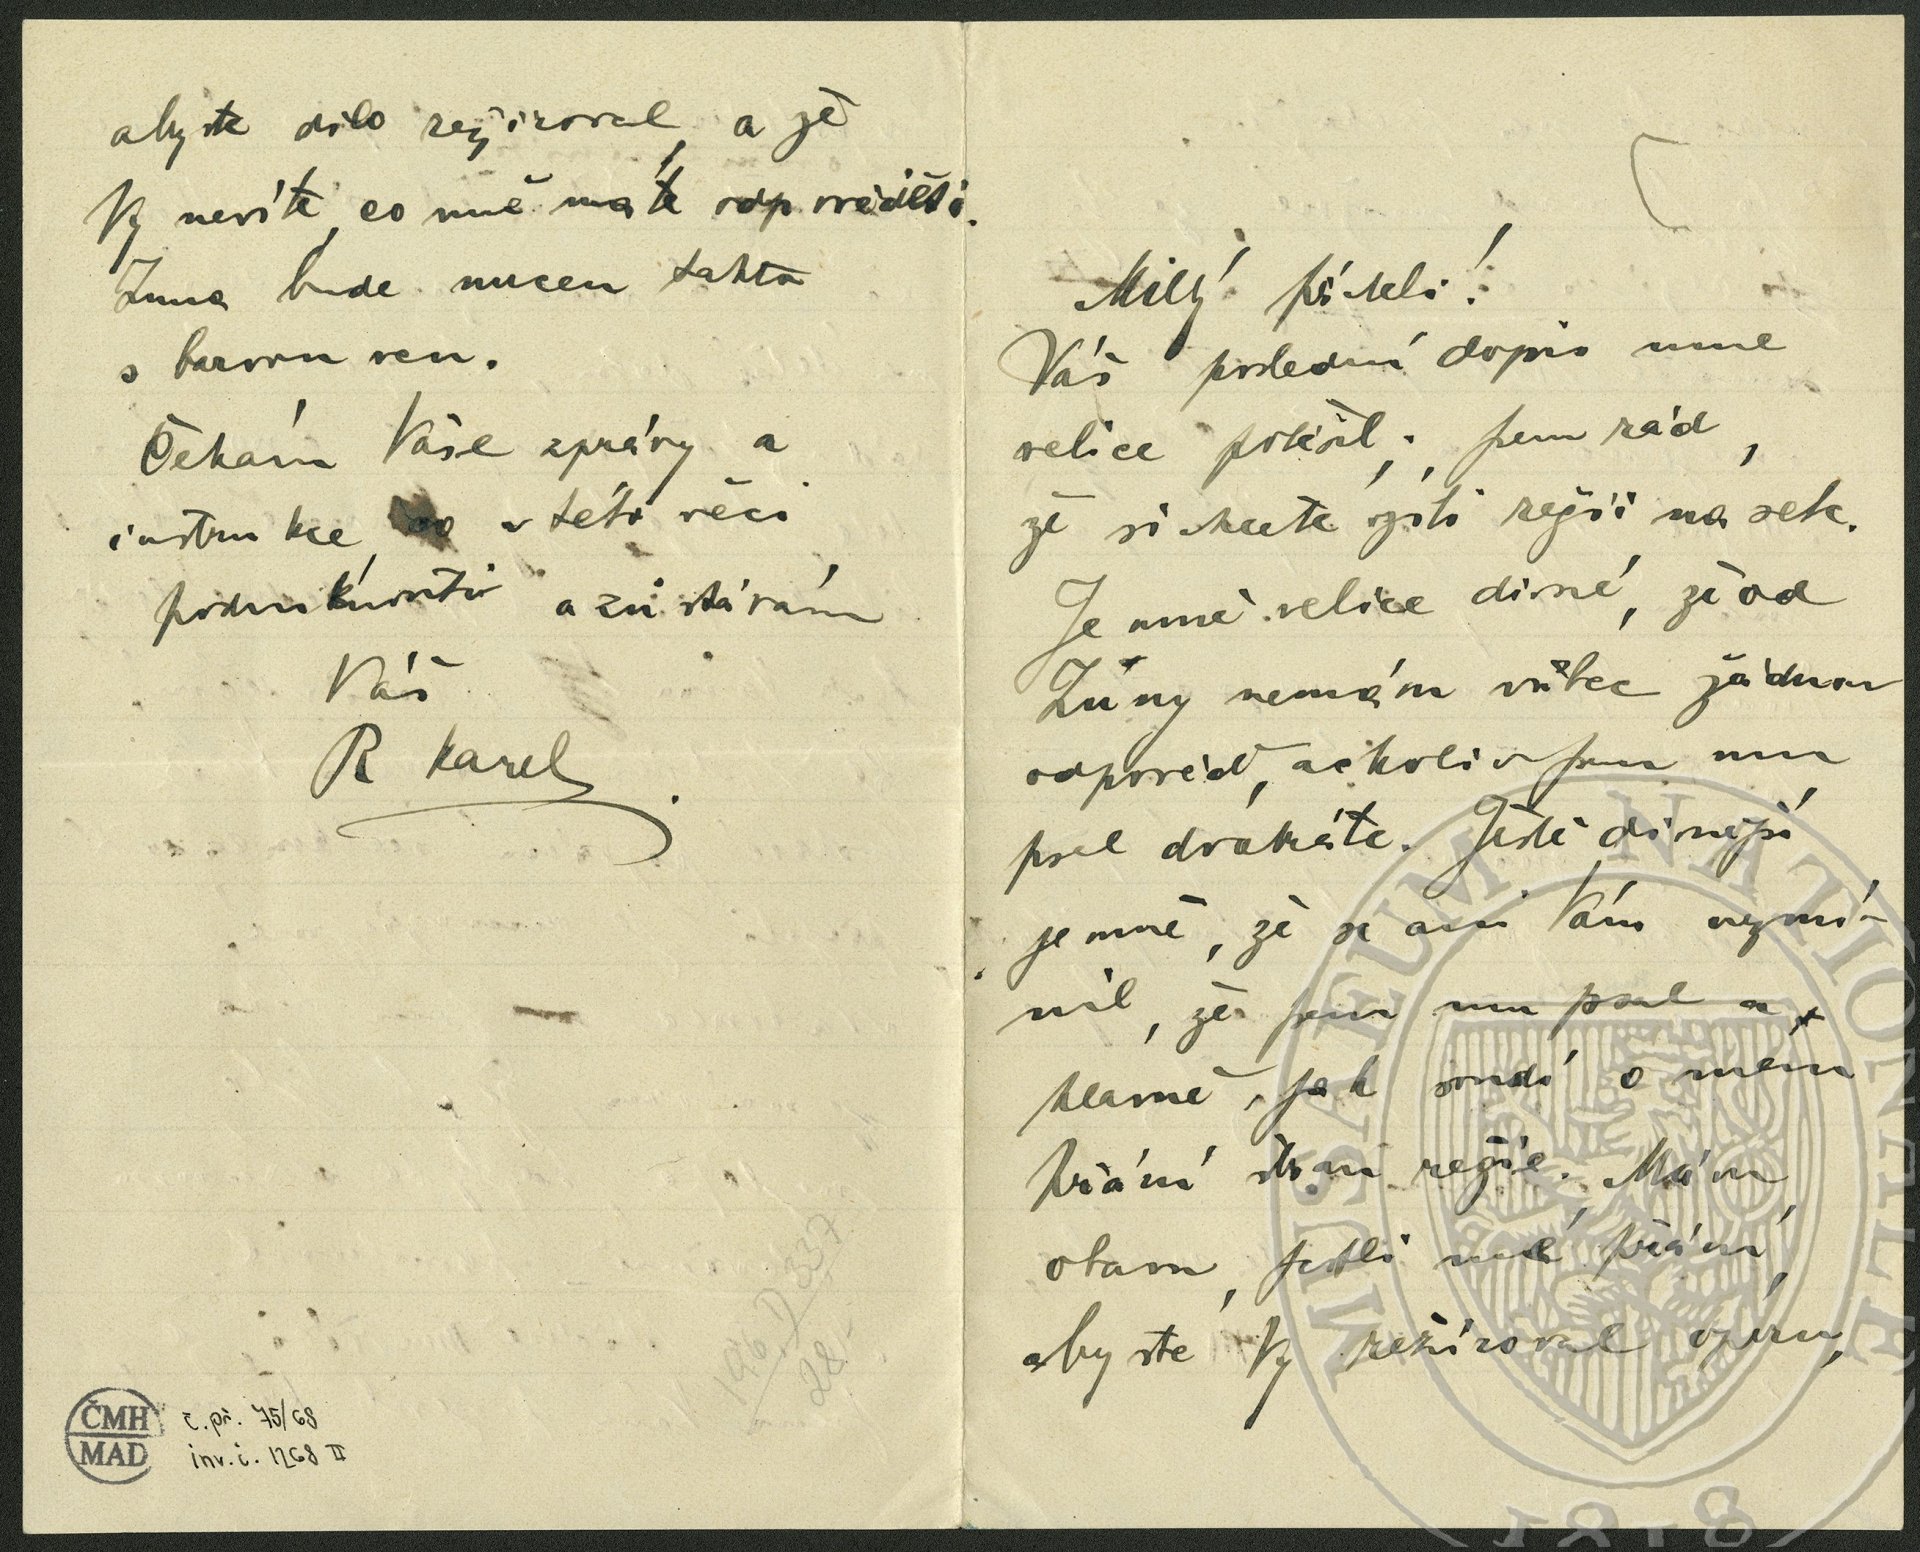 Milý příteli!
Váš poslední dopis mne
velice potěšil; jsem rád,
že si chcete vzíti režii na sebe.
Je mně velice divné, že od
Zúny nemám vůbec žádnou
odpověď, ačkoliv jsem mu
psal dvakráte. Ještě divnější
je mně, že se ani Vám nezmí-
nil, že jsem mu psal a
hlavně, jak soudí o mém
přání stran režie. Mám
obavu, jestli mé přání,
abyste Vy režíroval operu,
abyste dílo režiroval, a že
Vy nevíte, co mně máte odpověděti.
Zuna bude nucen takto
s barvou ven.
Čekám Vaše zprávy a
instrukce, co v této věci
podniknouti a zůstávám
Váš
R Karel
196 D 337
28
ČMH
MAD
č. př. 75/68
inv. č. 1268 II
MUSAEUM NATIONALE
1818